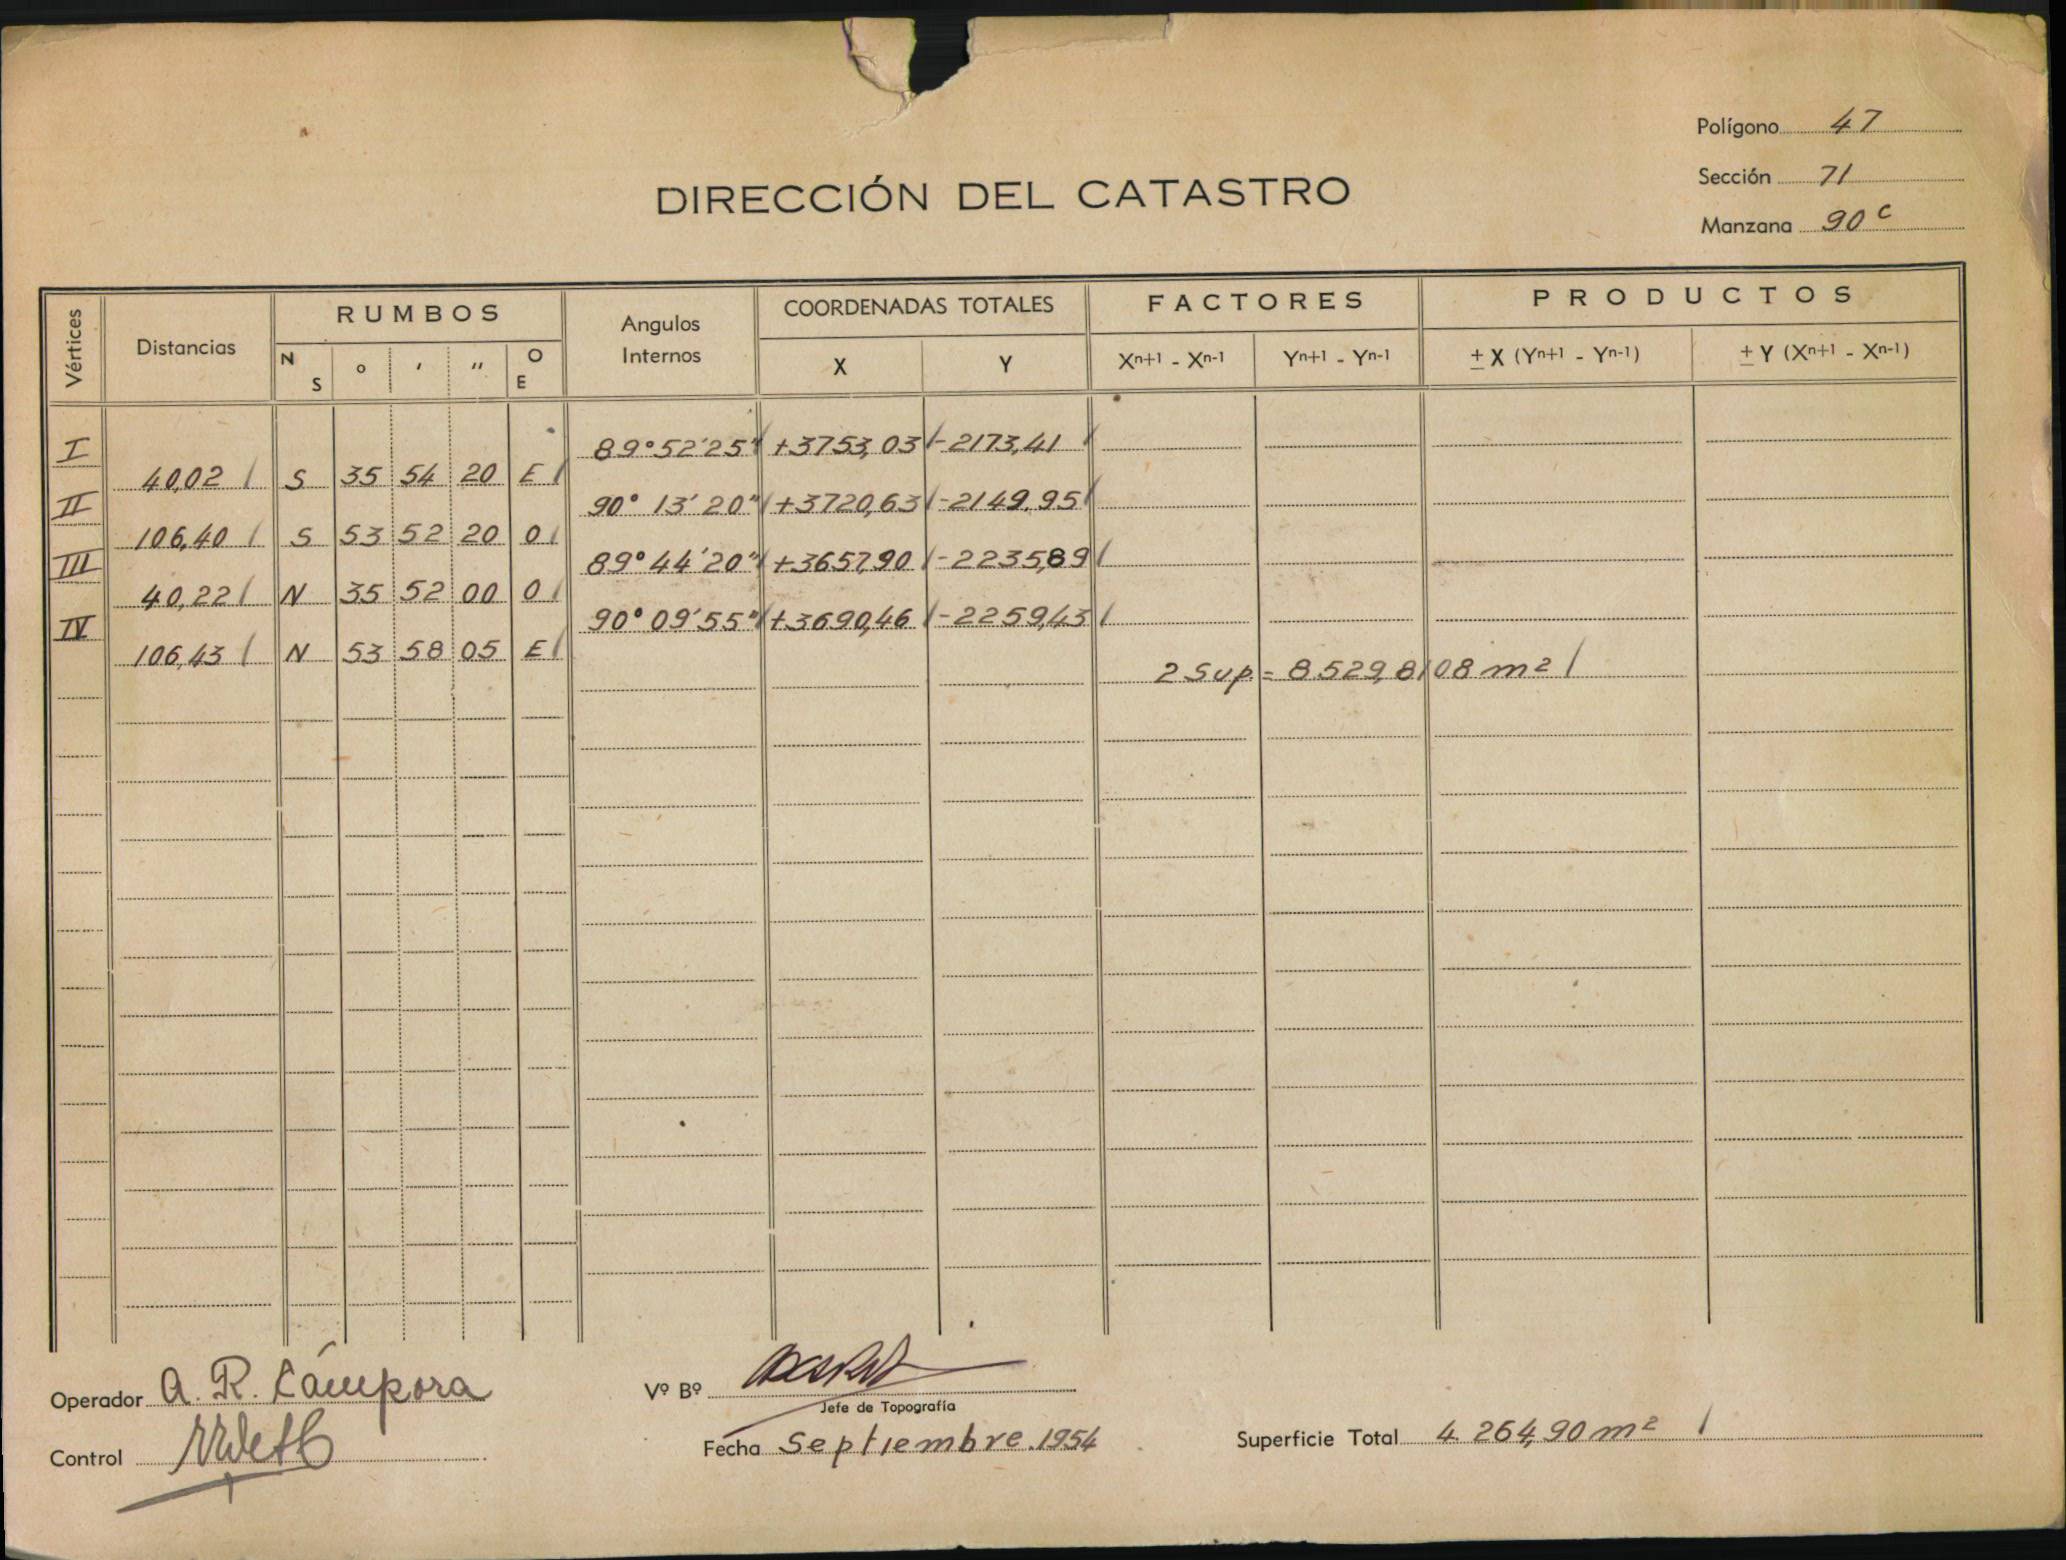 Polígono 47
Sección 71
Manzana 90 c
DIRECCIÓN DEL CATASTRO
Vértices Distancias RUMBOS Angulos Internos COORDENADAS TOTALES FACTORES PRODUCTOS
N S ° ′ ″ O E X Y Xn+1 - Xn-1 Yn+1 - Yn-1 ± X (Yn+1 - Yn-1) ± Y (Xn+1 - Xn-1)
I 89°52′25″ +3753,03 -2173,41
40,02 S 35 54 20 E
II 90° 13′ 20″ +3720,63 -2149,95
106,40 S 53 52 20 O
III 89°44′20″ +3657,90 -2235,89
40,22 N 35 52 00 O
IV 90° 09′55″ +3690,46 -2259,43
106,43 N 53 58 05 E
2 Sup = 8.529,8108 m²
Operador A. R. Cámpora
Vº Bº
Jefe de Topografía
Control
Fecha Septiembre.1954
Superficie Total 4.264,90 m²